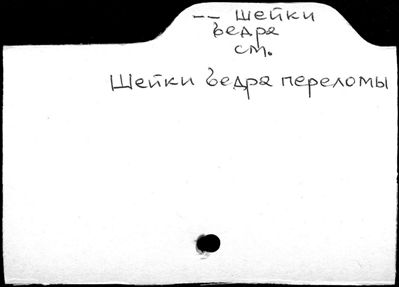 -- шейки
бедра
см.
Шейки бедра переломы